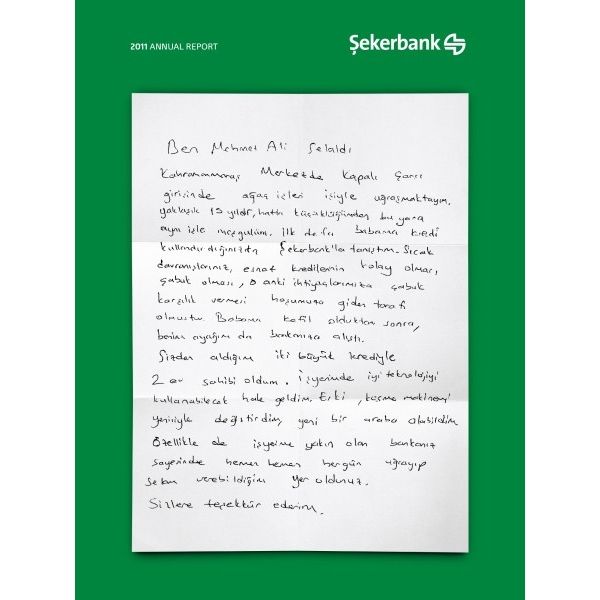 2011 ANNUAL REPORT
Şekerbank
Ben Mehmet Ali Şelaldı
Kahramanmaraş Merkezde Kapalı Çarşı
girişinde ağaç işleri işiyle uğraşmaktayım.
yaklaşık 15 yıldır, hatta küçüklüğümden bu yana
aynı işle meşgulüm. İlk defa babama kredi
kullandırdığınızda Şekerbank'la tanıştım. Sıcak
davranışlarınız, esnaf kredilerinin kolay olması,
çabuk olması, o anki ihtiyaçlarımıza çabuk
karşılık vermesi hoşumuza giden tarafı
olmuştu. Babama kefil olduktan sonra,
benim ayağım da bankanıza alıştı.
Sizden aldığım iki büyük krediyle
2 ev sahibi oldum. İşyerimde iyi teknolojiyi
kullanabilecek hale geldim. Eski, makinemi
yenisiyle değiştirdim, yeni bir araba alabildim
Özellikle de işyeime yakın olan bankanız
sayesinde hemen hemen hergün uğrayıp
selam verebildiğim yer oldunuz.
Sizlere teşekkür ederim.